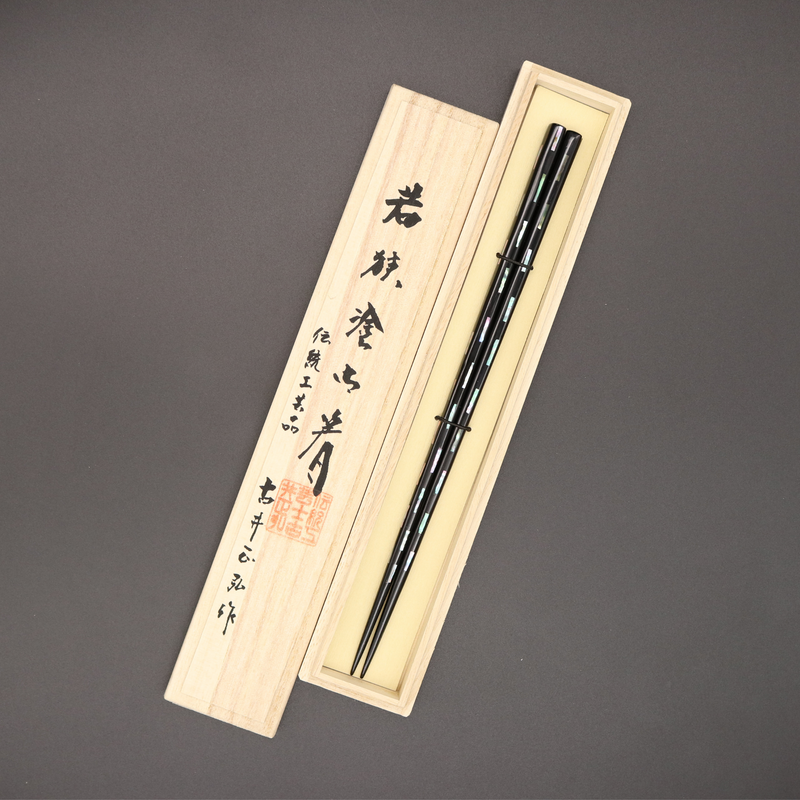 若狭塗御箸
伝統工芸品
古井正弘作